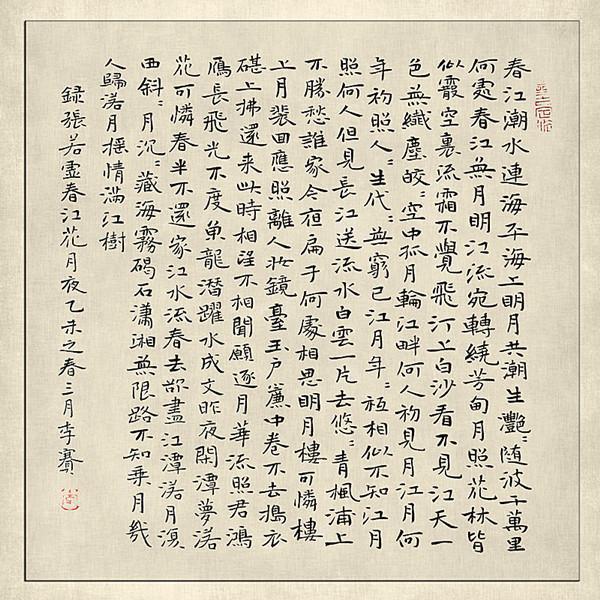 春江潮水連海平海上明月共潮生灔〻随波千萬里
何處春江無月明江流宛轉繞芳甸月照花林皆
似霰空裏流霜不覺飛汀上白沙看不見江天一
色無纖塵皎〻空中孤月輪江畔何人初見月江月何
年初照人〻生代〻無窮已江月年〻秖相似不知江月
照何人但見長江送流水白雲一片去悠〻青楓浦上
不勝愁誰家今夜扁子何處相思明月樓可憐樓
上月裴回應照離人妝鏡臺玉戶簾中卷不去搗衣
碪上拂還来此時相望不相聞願逐月華流照君鴻
鴈長飛光不度魚龍潛躍水成文昨夜閑潭夢落
花可憐春半不還家江水流春去欲盡江潭落月復
西斜〻月沉〻藏海霧碣石瀟湘無限路不知乘月幾
人歸落月搖情滿江樹
錄張若虛春江花月夜乙未之春三月李賽